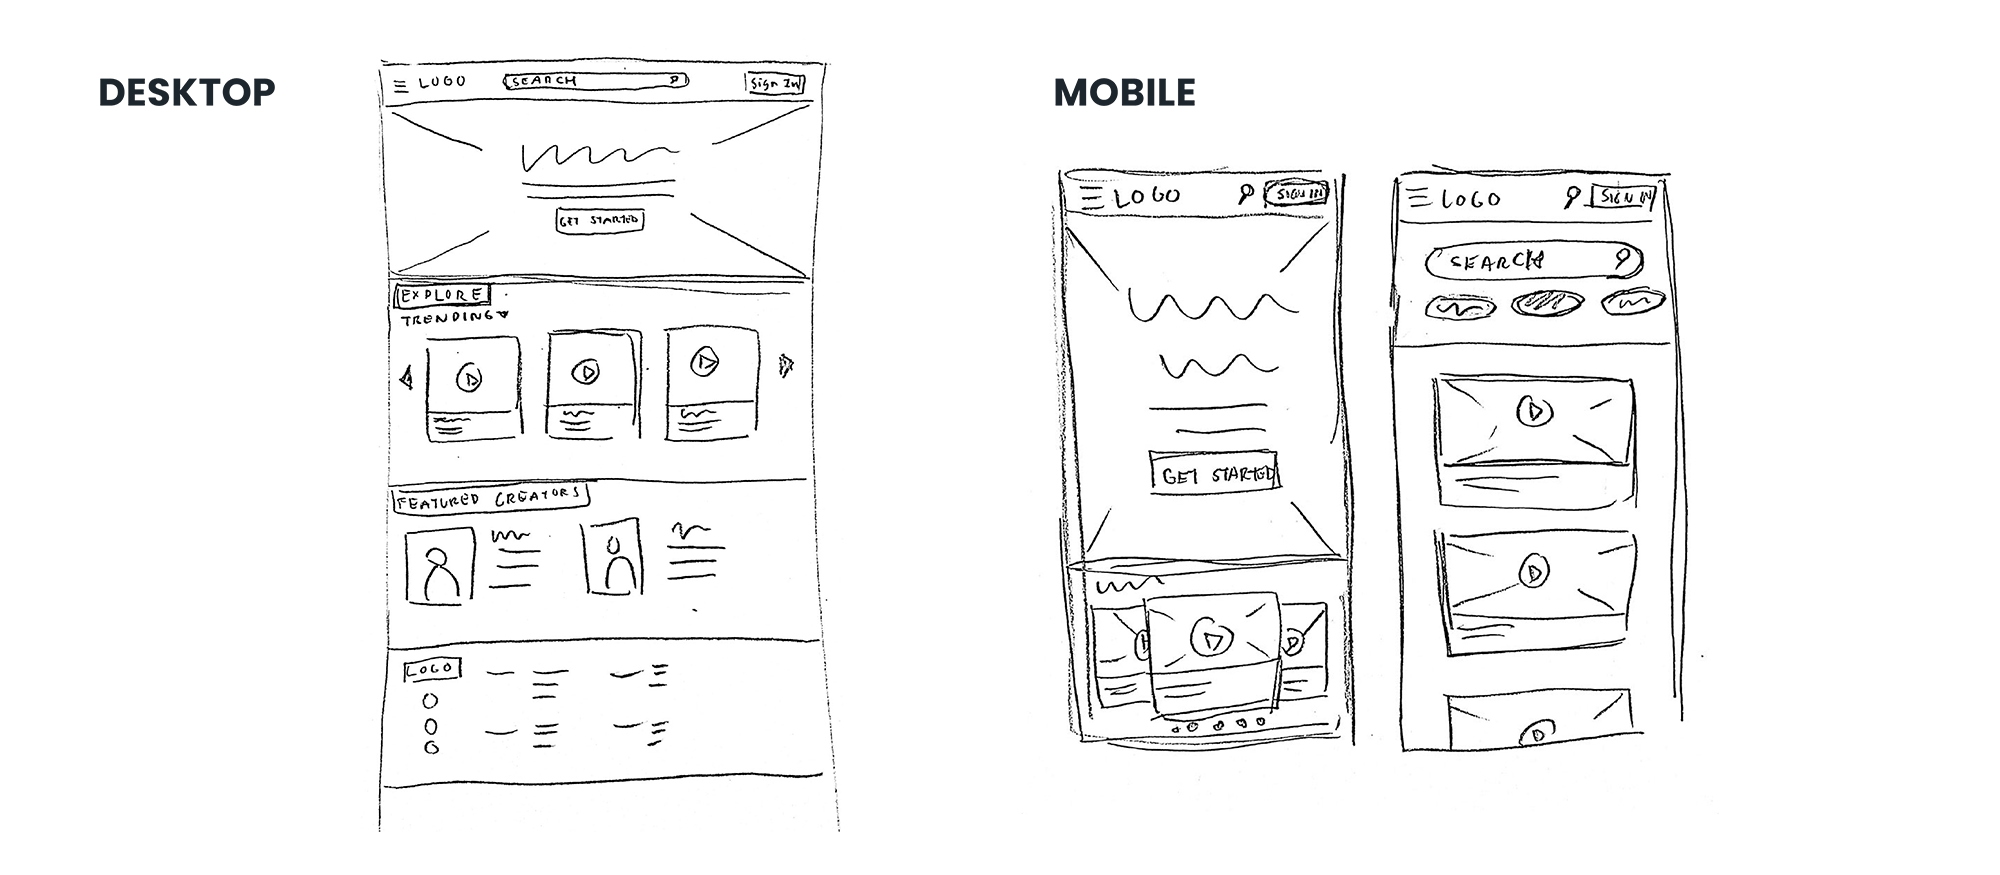 DESKTOP
LOGO SEARCH Sign In
GET STARTED
EXPLORE
TRENDING
FEATURED CREATORS
LOGO
MOBILE
LOGO SIGN IN
GET STARTED
LOGO SIGN IN
SEARCH